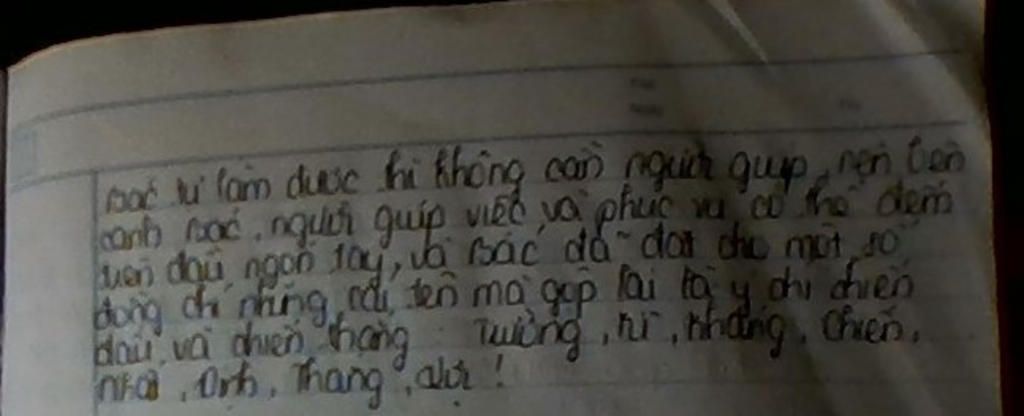 Bác tự làm được thì không cần người giúp, nên bên
cạnh Bác, người giúp việc và phục vụ có thể đếm
trên đầu ngón tay, và Bác đã đặt cho một số
đồng chí những cái tên mà gộp lại là ý chí chiến
đấu và chiến thắng: Trường, Kì, Kháng, Chiến,
Nhất, Định, Thắng, Lợi!